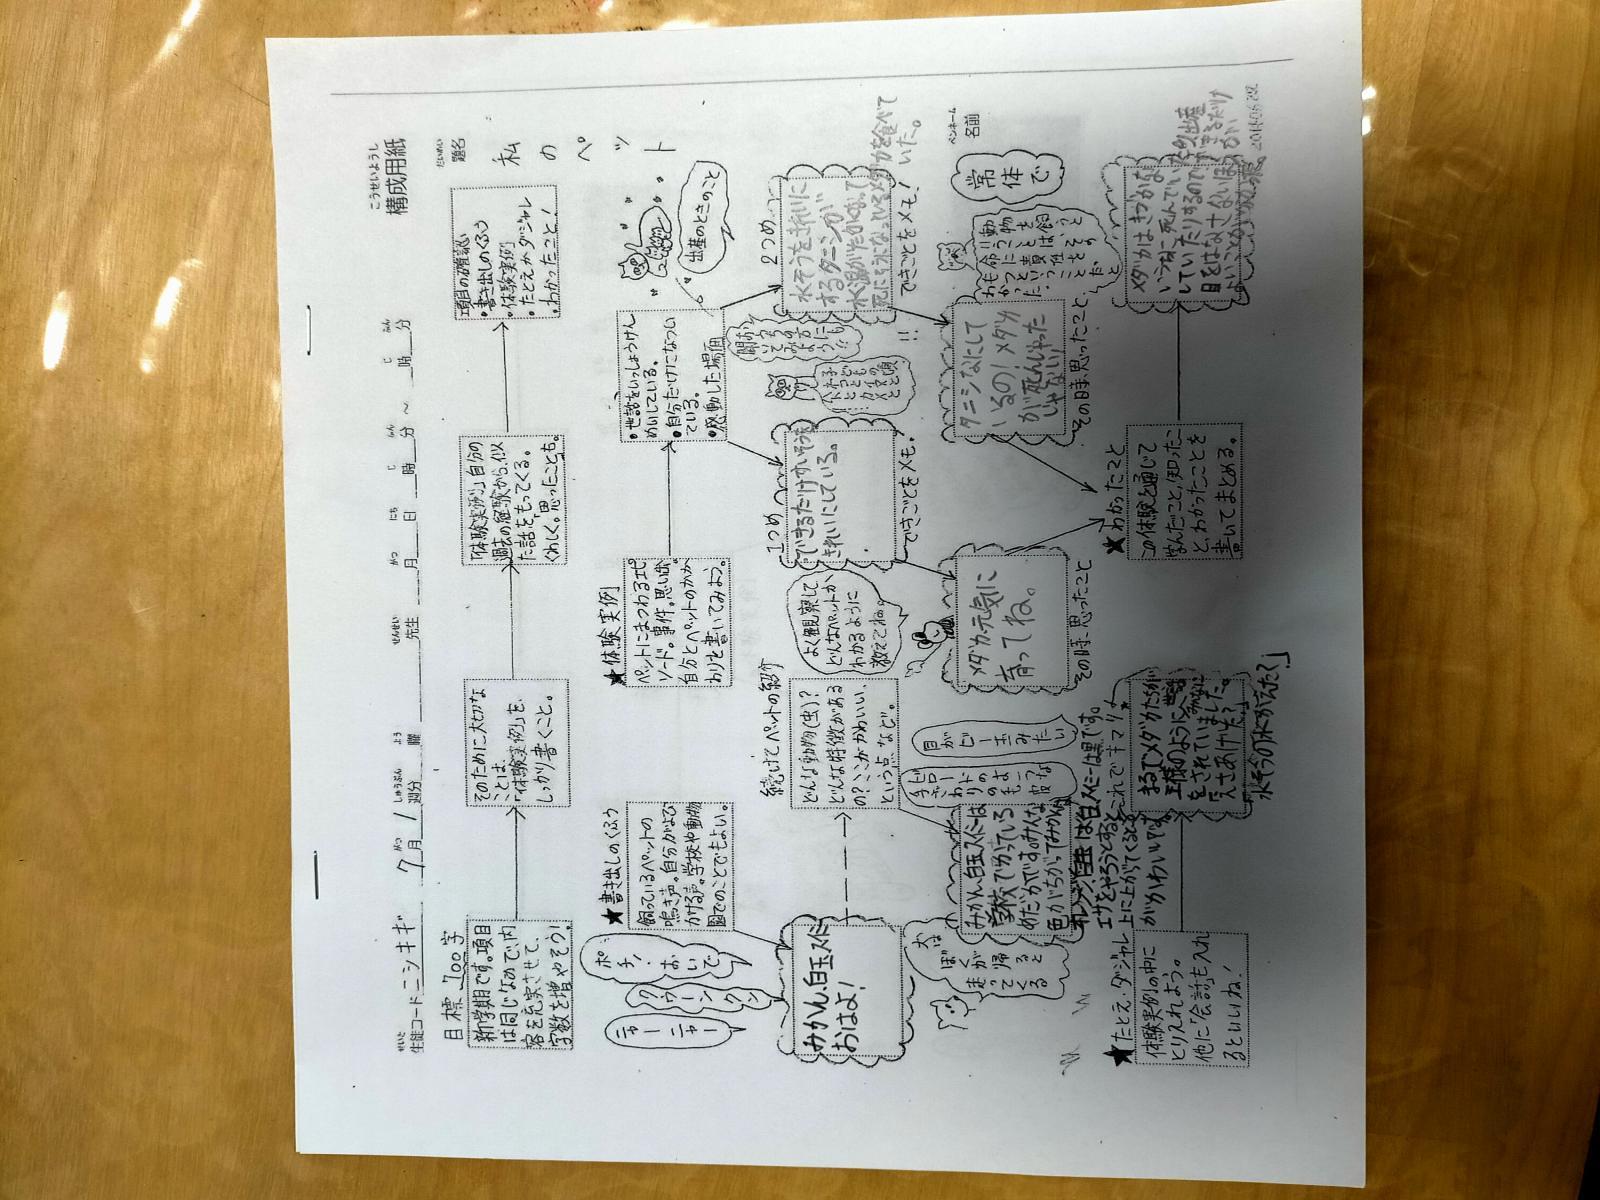 こうせいようし
構成用紙
せいと
生徒コード ニシキギ 7月 1週分 曜 先生 月 日 時 分 ～ 時 分
がつ しゅうぶん よう せんせい がつ にち じ ふん じ ふん
目標 700字
だいめい
題名
私のペット
新学期です。項目
は同じなので、内
容を充実させて、
字数を増やそう！
そのために大切な
ことは、
「体験実例」を、
しっかり書くこと。
「体験実例」自分の
過去の経験から、似
た話をもってくる。
くわしく。思ったことも。
項目の確認
・書き出しのくふう
・体験実例
・たとえかダジャレ
・わかったこと！
★書き出しのくふう
飼っているペットの
鳴き声。自分がよび
かける声。学校や動物
園でのことでもよい。
ニャーニャー
クゥーンクン
ポチ！おいで
みかん、白玉、スイミー
おはよ！
続けてペットの紹介
どんな動物(虫)？
どんな特徴がある
の？ここがかわいい、
という点、など。
よく観察して
どんなペットか
わかるように
教えてね。
犬は
ぼくが
帰ると
走って
くる
目が
ビー玉
みたい
みかん、白玉、スイミーは
学校でかっている
めだかです。みんな
色がちがってみかんは
オレンジ、白玉は白、スイミーは黒です。
エサをやろうとすると
上に上がってくるところ
がかわいいです。
★体験実例
ペットにまつわるエピ
ソード。事件。思い出。
自分とペットのかか
わりを書いてみよう。
・世話をいっしょうけん
めいしている。
・自分だけになつい
ている。
・感動した場面
出産のときのこと
1つめ
できるだけ水そうを
きれいにしている。
できごとをメモ！
2つめ
水そうをきれいに
するタニシが
水温がたかくなって
死にそうになっているメダカを食べて
いた。
できごとをメモ！
!!
メダカ、元気に
育ってね。
その時、思ったこと
タニシなにして
いるの！メダカ
が死んじゃった
じゃない！
その時、思ったこと
ペンネーム
名前
常体で
★わかったこと
この体験を通じて
学んだこと、知ったこ
と、わかったことを
書いてまとめる。
メダカは、きづかな
いうちに死んでいたり出産
していたりするので、できるだけ
目をはなさないほうが
よいということがわかった。
★たとえ・ダジャレ
体験実例の中に
とり入れよう。
他に「会話」も入れ
るといいね！
これでキマリ
まるでメダカたちが
王様のように
をされていました。
「えさあげた？」
「水そうの水かえた？」